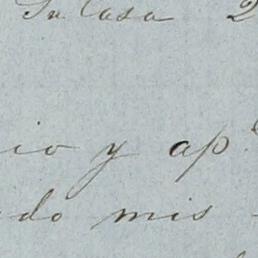 Su Casa 2
cio y ap.
do mis